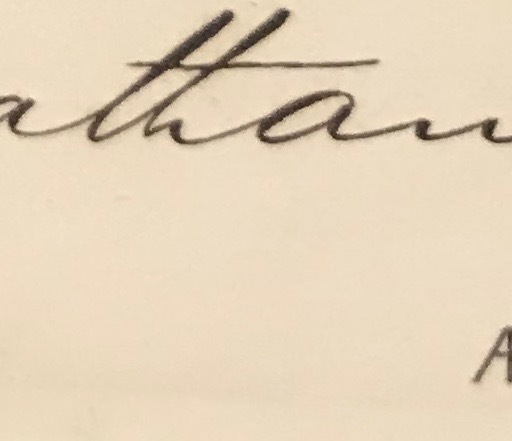 athan
A